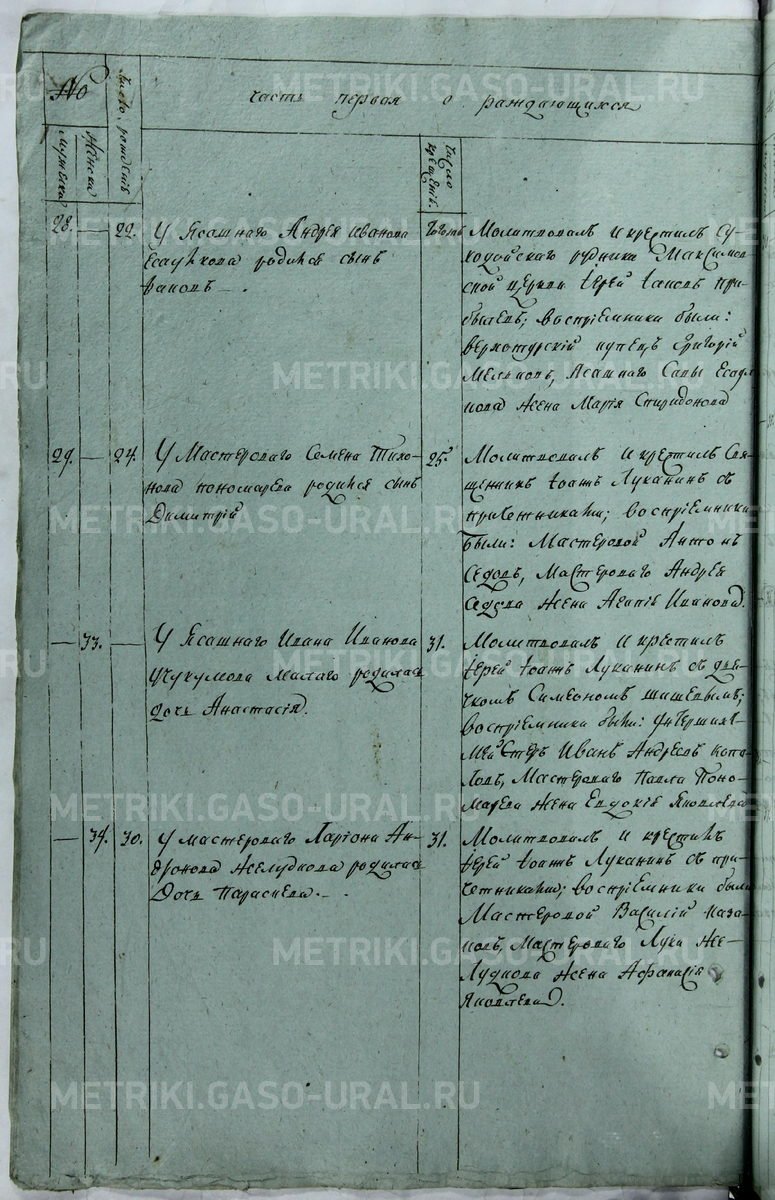 №
Число рождені
Часть первая о раждающихся
мужеска
женска
число крещені.
28. — 22. У Ясашнаго Андрея Иванова
Есаулкова родился сынъ
Іаковъ —.
тогожъ Молитвовалъ и крестилъ Су-
ходойскаго рудника Максимов
ской церкви іерей Іаковъ При-
былевъ; воспріемники были:
верхотурскій купецъ Григорій
Мельковъ, Ясашнаго Савы Есаул
кова жена Марія Спиридонова
29. — 24. У Мастероваго Семена Тихо-
нова пономарева родился сынъ
Димитрій
25. Молитвовалъ и крестилъ Свя-
щенникъ Іоаннъ Луканинъ съ
причетниками; воспріемники
были: Мастеровой Антонъ
Седовъ, Мастероваго Андрея
Седова жена Агапія Иванова.
— 33. — У Ясашнаго Ивана Иванова
Чукумова Малаго родилась
дочь Анастасія.
31. Молитвовалъ и крестилъ
іерей Іоаннъ Луканинъ съ дья-
чкомъ Симеономъ Шишевымъ;
воспріемники были: Унтершихт-
мейстеръ Иванъ Андреевъ Копа-
ловъ, Мастероваго Павла Поно-
марева жена Евдокія Яковлева
— 34. 30. У мастероваго Ларіона Ан-
дронова Желудкова родилась
дочь Параскева. —.
31. Молитвовалъ и крестилъ
іерей Іоаннъ Луканинъ съ при-
четниками; воспріемники были
Мастеровой Василій Каза-
ковъ, Мастероваго Луки Же-
лудкова жена Афанасія
Яковлева.
METRIKI.GASO-URAL.RU